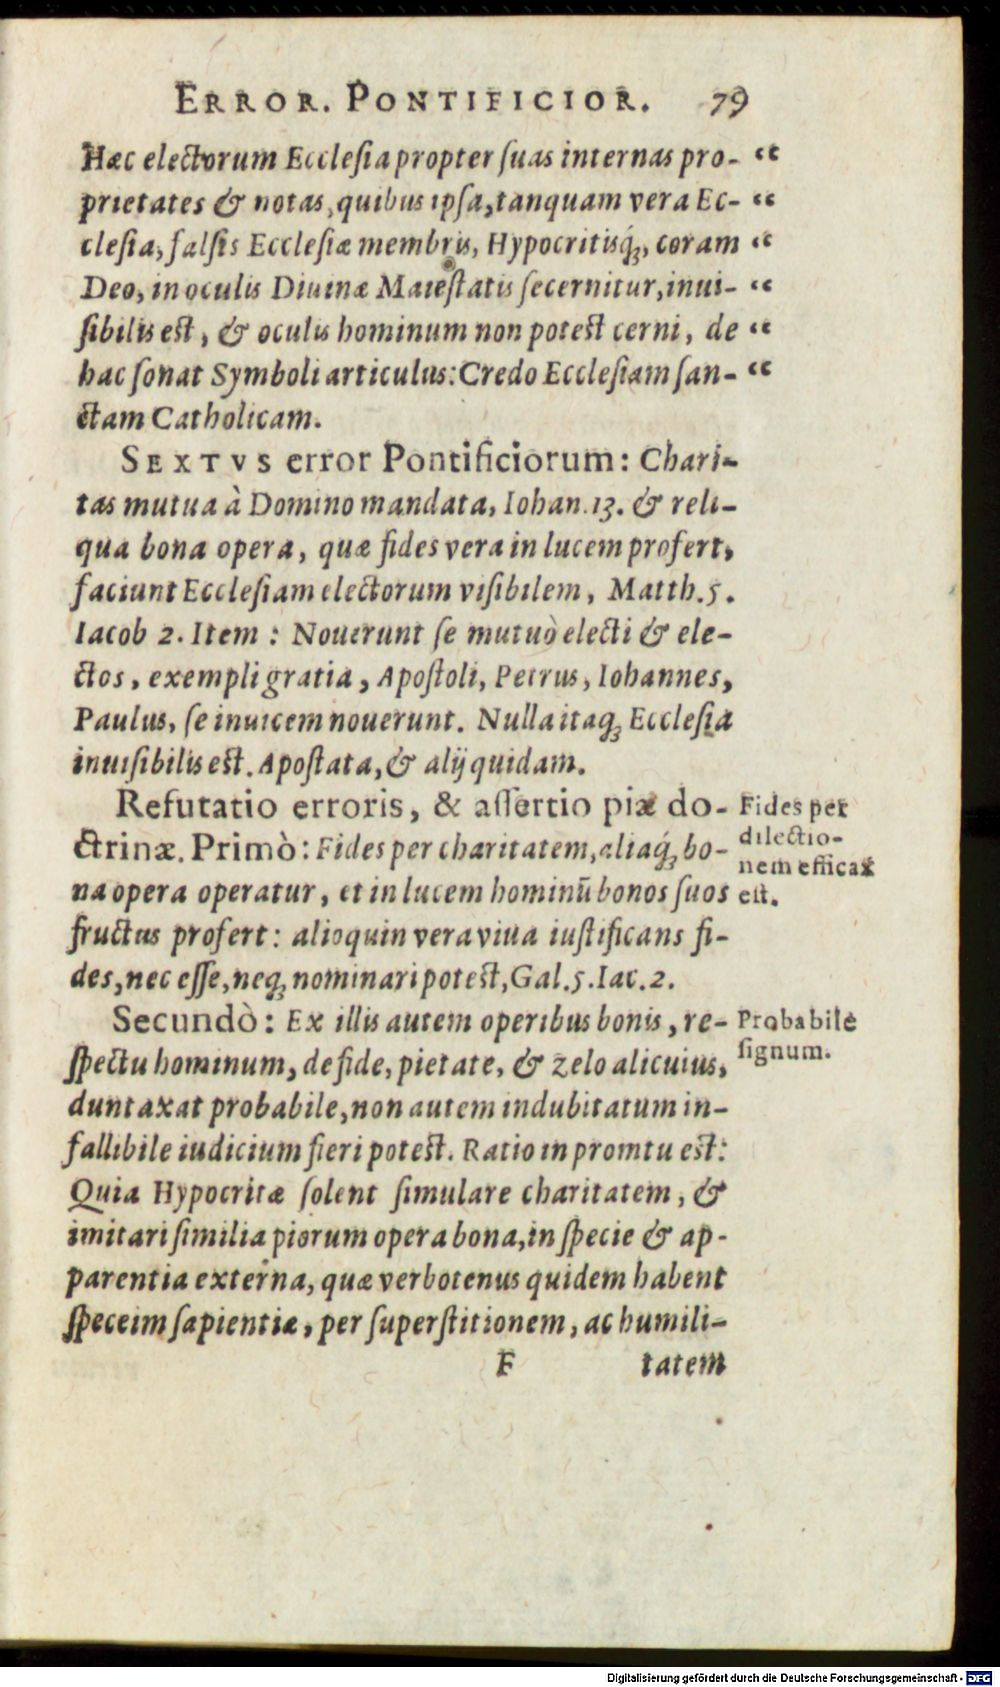 ERROR. PONTIFICIOR. 79
Hæc electorum Ecclesia propter suas internas pro- “
prietates & notas, quibus ipsa, tanquam vera Ec- “
clesia, falsis Ecclesiæ membris, Hypocritisq́ꝫ, coram “
Deo, in oculis Diuinæ Maiestatis secernitur, inui- “
sibilis est, & oculis hominum non potest cerni, de “
hac sonat Symboli articulus: Credo Ecclesiam san- “
ctam Catholicam.
SEXTVS error Pontificiorum: Chari-
tas mutua à Domino mandata, Iohan. 13. & reli-
qua bona opera, quæ fides vera in lucem profert,
faciunt Ecclesiam electorum visibilem, Matth. 5.
Iacob 2. Item: Nouerunt se mutuò electi & ele-
ctos, exempli gratia, Apostoli, Petrus, Iohannes,
Paulus, se inuicem nouerunt. Nulla itaqꝫ Ecclesia
inuisibilis est. Apostata, & alij quidam.
Refutatio erroris, & assertio piæ do-
ctrinæ. Primò: Fides per charitatem, aliaq́ꝫ bo-
na opera operatur, et in lucem hominū bonos suos
fructus profert: alioquin vera viua iustificans fi-
des, nec esse, neqꝫ nominari potest, Gal. 5. Iac. 2.
Fides per
dilectio-
nem efficax
est.
Secundò: Ex illis autem operibus bonis, re-
spectu hominum, de fide, pietate, & zelo alicuius,
duntaxat probabile, non autem indubitatum in-
fallibile iudicium fieri potest. Ratio in promtu est:
Quia Hypocritæ solent simulare charitatem, &
imitari similia piorum opera bona, in specie & ap-
parentia externa, quæ verbotenus quidem habent
speceim sapientiæ, per superstitionem, ac humili-
Probabile
signum.
F tatem
Digitalisierung gefördert durch die Deutsche Forschungsgemeinschaft - DFG